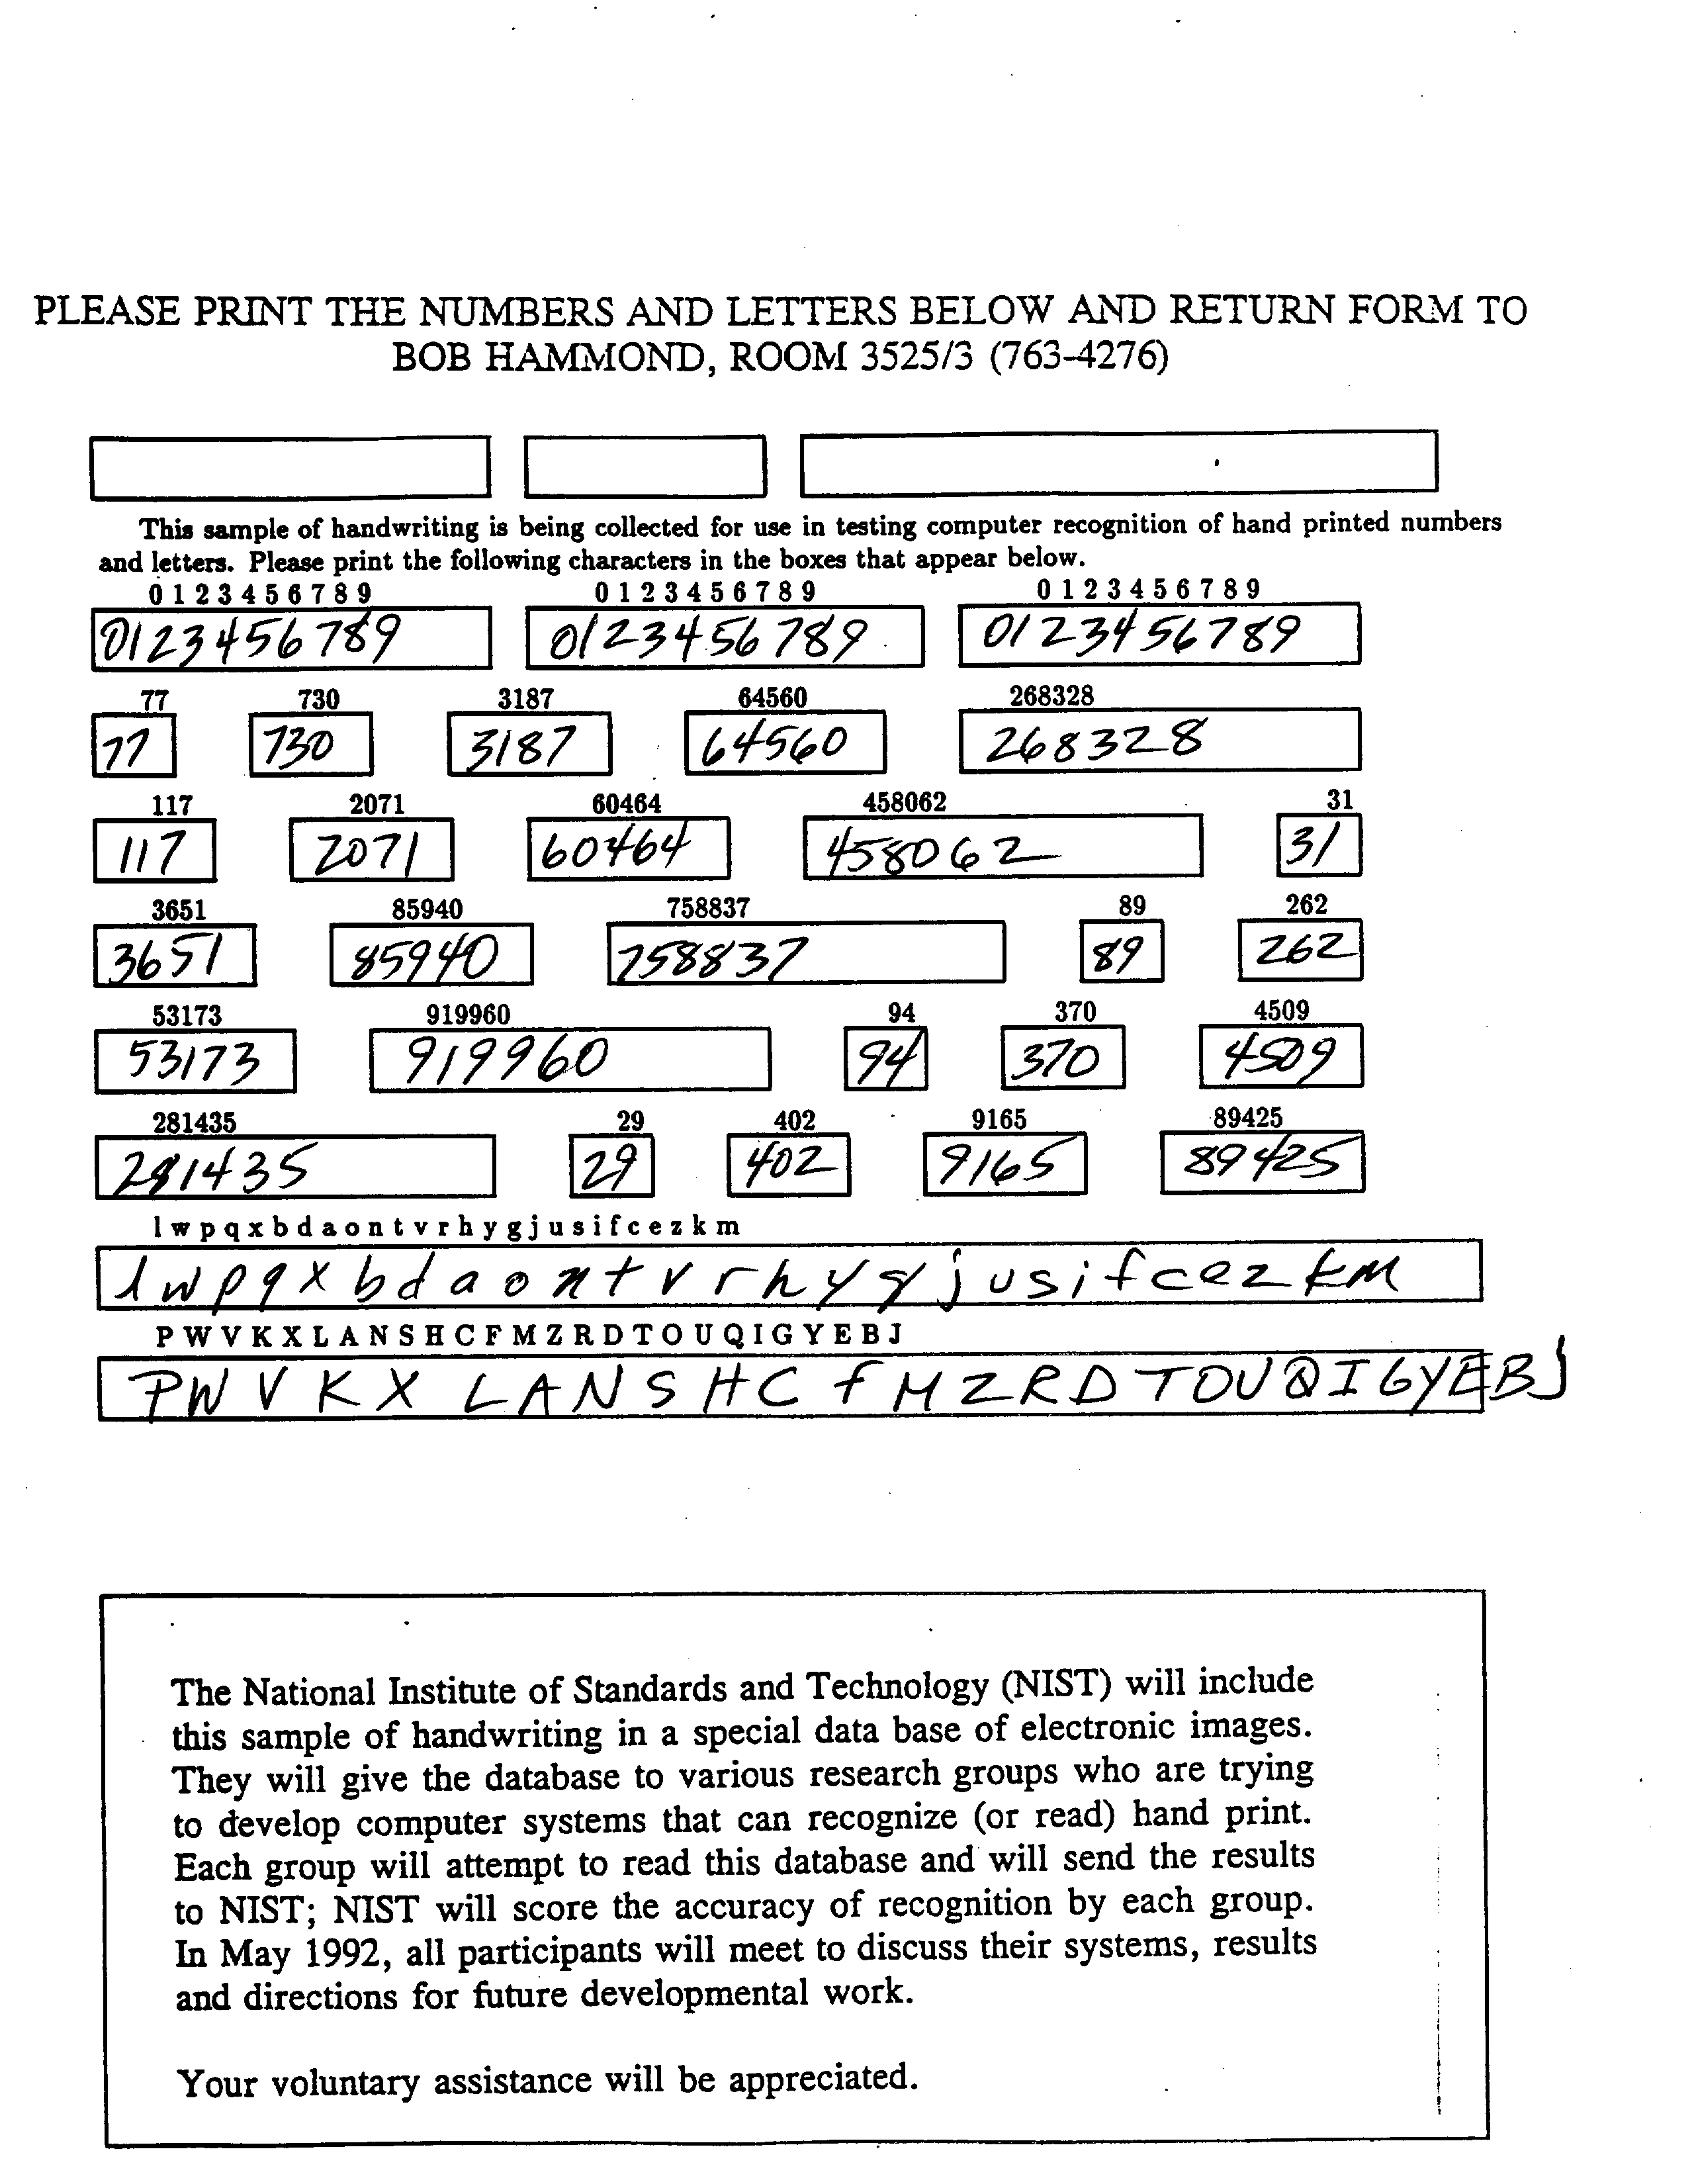 PLEASE PRINT THE NUMBERS AND LETTERS BELOW AND RETURN FORM TO
BOB HAMMOND, ROOM 3525/3 (763-4276)
This sample of handwriting is being collected for use in testing computer recognition of hand printed numbers
and letters. Please print the following characters in the boxes that appear below.
0 1 2 3 4 5 6 7 8 9 0 1 2 3 4 5 6 7 8 9 0 1 2 3 4 5 6 7 8 9
0123456789 0123456789 0123456789
77 730 3187 64560 268328
77 730 3187 64560 268328
117 2071 60464 458062 31
117 2071 60464 458062 31
3651 85940 758837 89 262
3651 85940 758837 89 262
53173 919960 94 370 4509
53173 919960 94 370 4509
281435 29 402 9165 89425
281435 29 402 9165 89425
l w p q x b d a o n t v r h y g j u s i f c e z k m
l w p q x b d a o n t v r h y g j u s i f c e z k m
P W V K X L A N S H C F M Z R D T O U Q I G Y E B J
P W V K X L A N S H C f M Z R D T O U Q I G Y E B J
The National Institute of Standards and Technology (NIST) will include
this sample of handwriting in a special data base of electronic images.
They will give the database to various research groups who are trying
to develop computer systems that can recognize (or read) hand print.
Each group will attempt to read this database and will send the results
to NIST; NIST will score the accuracy of recognition by each group.
In May 1992, all participants will meet to discuss their systems, results
and directions for future developmental work.
Your voluntary assistance will be appreciated.